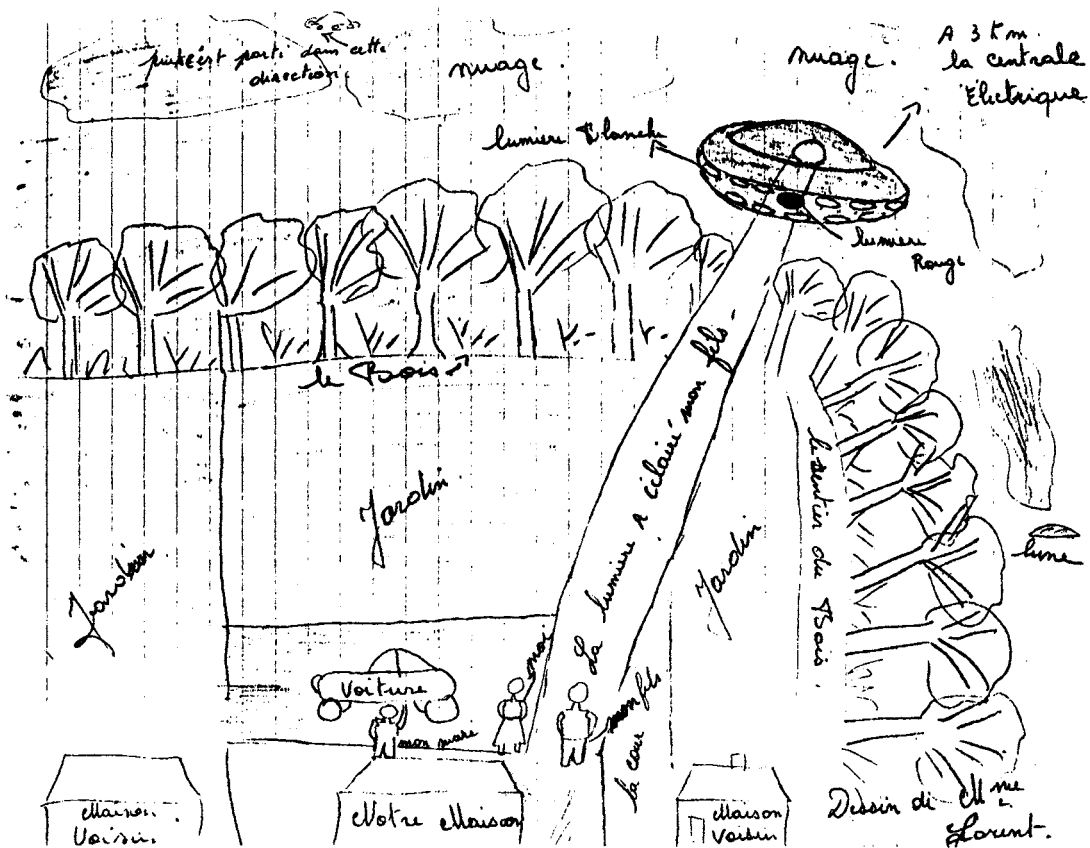 puis est parti dans cette
direction
nuage.
nuage.
A 3 km.
la centrale
Électrique
lumiere Blanche
lumiere
Rouge
le Bois
Jardin
Jardin.
La lumiere A éclairé mon fils.
Jardin
le sentier du Bois.
lune
Voiture
mon mari
moi
mon fils
la cour
Maison.
Voisin.
Notre Maison
Maison
Voisin
Dessin de Mme
Lorent.